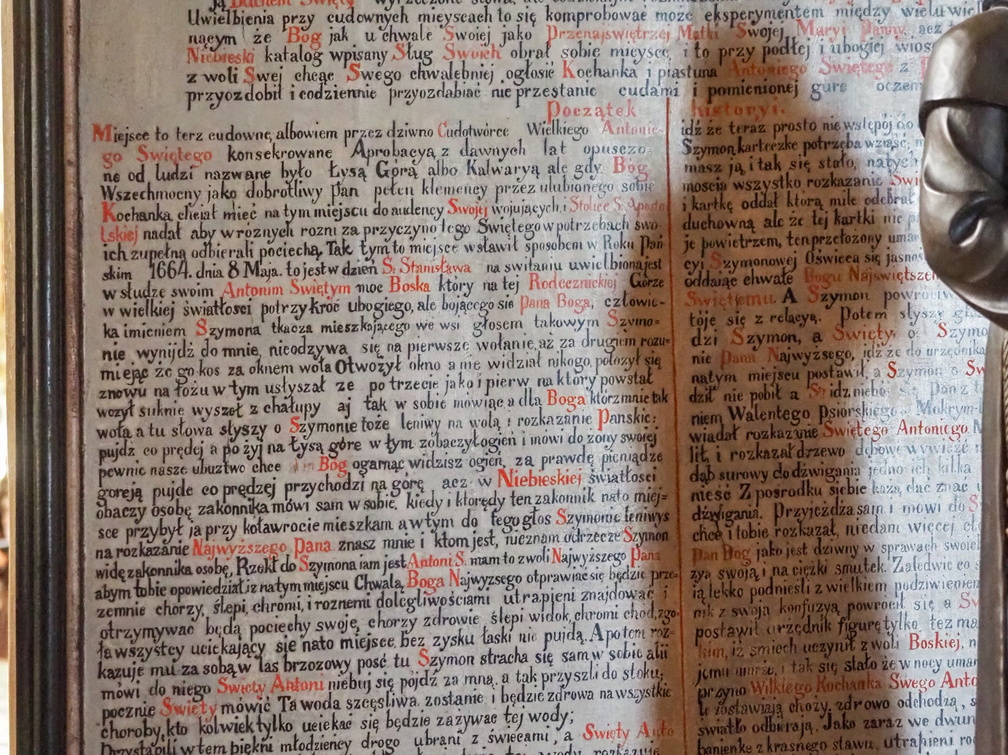 Duchem Swięty wyrzeczone słowa, ale
Uwielbienia przy cudownych mieyscach to się komprobować może eksperymentem między wielu wiel
nącym że Bog jak u chwale Swoiej jako Przenajswiętrzej Matki Swojej Maryi Panny, aez
Niebieski katalog wpisany Sług Swoich obrał sobie mieysce, i to przy podłej i ubogiej wios
z woli Swej chcąc Swego chwalebniej ogłosić Kochanka i piastuna Antoniego Swiętego z
przyozdobił i codziennie przyozdabiać nie przestanie cudami i pomienionej gure oczem
Początek historyi.
Miejsce to terz cudowne, albowiem przez dziwno Cudotworce Wielkiego Antonie-
go Swiętego konsekrowane Aprobacyą z dawnych lat opuszczo-
ne od ludzi nazwane było Łysą Górą albo Kalwaryą ale gdy Bóg
Wszechmocny jako dobrotliwy Pan pełen klemencyi przez ulubionego sobie
Kochanka chciał mieć na tym miejscu do audency Swojej wojujących, i Stolice S. Aposto
lskiej nadał aby w roznych rozni za przyczyno Iego Swiętego w potrzebach swo-
ich zupełną odbierali pociechą. Tak tym to miejsce wsławił sposobem w Roku Pań
skim 1664. dnia 8 Maja. to jest w dzień S. Stanisława na switaniu uwielbiona jest
w słudze swoim Antonim Swiętym moc Boska który na tej Rodecznickiej Górze
w wielkiej światłości potrzykroć ubogiego, ale bojącego się Pana Boga, człowie-
ka imieniem Szymona tkacza mieszkającego we wsi głosem takowym Szymo-
nie wynijdź do mnie, nieodzywa się na pierwsze wołanie, aż za drugiem rozu-
miejąc że go kos za oknem woła Otwożył okno a nie widział nikogo, położył się
znowu na łożu w tym usłyszał ze po trzecie jako i pierw na który powstał
wożył suknie wyszeł z chałupy aj tak w sobie mówiąc a dla Boga któż mnie tak
woła a tu słowa słyszy o Szymonie toże leniwy na wolą i rozkazanie Panskie:
pujdź co prędej a pożyj na łysą góre w tym zobaczył ogień i mówi do żony swojej
pewnie nasze ubuztwo chce Bóg ogarnąć widzisz ogień, za prawdę pieniądze
goreją pujde co prędzej przychodzi na górę aez w Niebieskiej światłosci
obaczy osobę zakonnika mówi sam w sobie, kiedy i ktorędy ten zakonnik nato miej-
sce przybył ja przy koławrocie mieszkam a w tym do tego głos Szymonie leniwyś
na rozkazanie Najwyższego Pana znasz mnie i ktom jest, nieznam odrzecze Szymon
widzę zakonnika osobę, Rzekł do Szymona iam jest Antoni S. mam to z woli Najwyższego Pana
abym tobie opowiedział iż na tym miejscu Chwała Boga Najwyzsego otprawiać się będzie prze-
zemnie chorzy, ślepi, chromi, i roznemi dolegliwościami utrapieni znajdować i
otrzymywać będą pociechy swoje, chorzy zdrowie ślepi widok, chromi chod, zgo-
ła wszystcy uciekający się nato miejsce, bez zysku łaski nie pujdą. A potem roz-
kazuje mu za sobą w las brzozowy posć tu Szymon stracha się sam w sobie ali
mówi do niego Swięty Antoni niebuj się pojdź za mną, a tak przyszli do stoku,
pocznie Swięty mówić Ta woda szczęśliwa zostanie i będzie zdrowa na wszystkie
choroby, kto kolwiek tylko uciekać się będzie zażywać tej wody;
Przystąpili w tem piękni młodzieńcy drogo ubrani z świecami, a Swięty Anto
idź że teraz prosto nie wstępój do
Szymon, karteczke potrzęba wziąsć,
masz ją i tak się stało, natych
moscia wszystko rozkazanie Swi
i kartkę oddał którą mile odebrał
duchowną ale że tej kartki nie p
je powietrzem, ten przełożony umar
cyi Szymonowej Oświeca się jasnos
oddaiąc chwałe Bogu Najswiętsze
Swiętemu A Szymon powróci
toje się z relacyą. Potem słysze gło
dzi Szymon, a Swięty, o Szymo
nie Pana Najwyzsego, idź ze do urzędnika
natym miejscu postawił, a Szymon o Sw
dził nie pobił a S. idz niebo Pan z
niem Walentego Psiorskiego Mokrym-l
wiadał rozkazanie Swiętego Antoniego
lit i rozkazał drzewo dębowe wywieźć
dąb surowy do dzwigania jedno ich kilka
nieść Z pośrodku siebie każą, dać znac u
dzwigania. Przyjeżdza sam i mowi do S
chce i tobie rozkazał, niedam więcej
Pan Bog jako jest dziwny w sprawach swoich
zya swoją i na ciężki smutek. Zaledwie co
ią lekko podniesli z wielkiem podziwieniem
nik z swoja konfuzyą powrocił się a Sw
postawił urzędnik figurę tylko, też ma
iż smiech uczynił z woli Boskiej,
jemu murze, i tak się stało że w nocy umar
przyno Wielkiego Kochanka Swego Anto
te zostawiają choży, zdrowo odchodzą,
światło odbierają. Jako zaraz we dwun
banienke z krasnego stawu, utrapieni